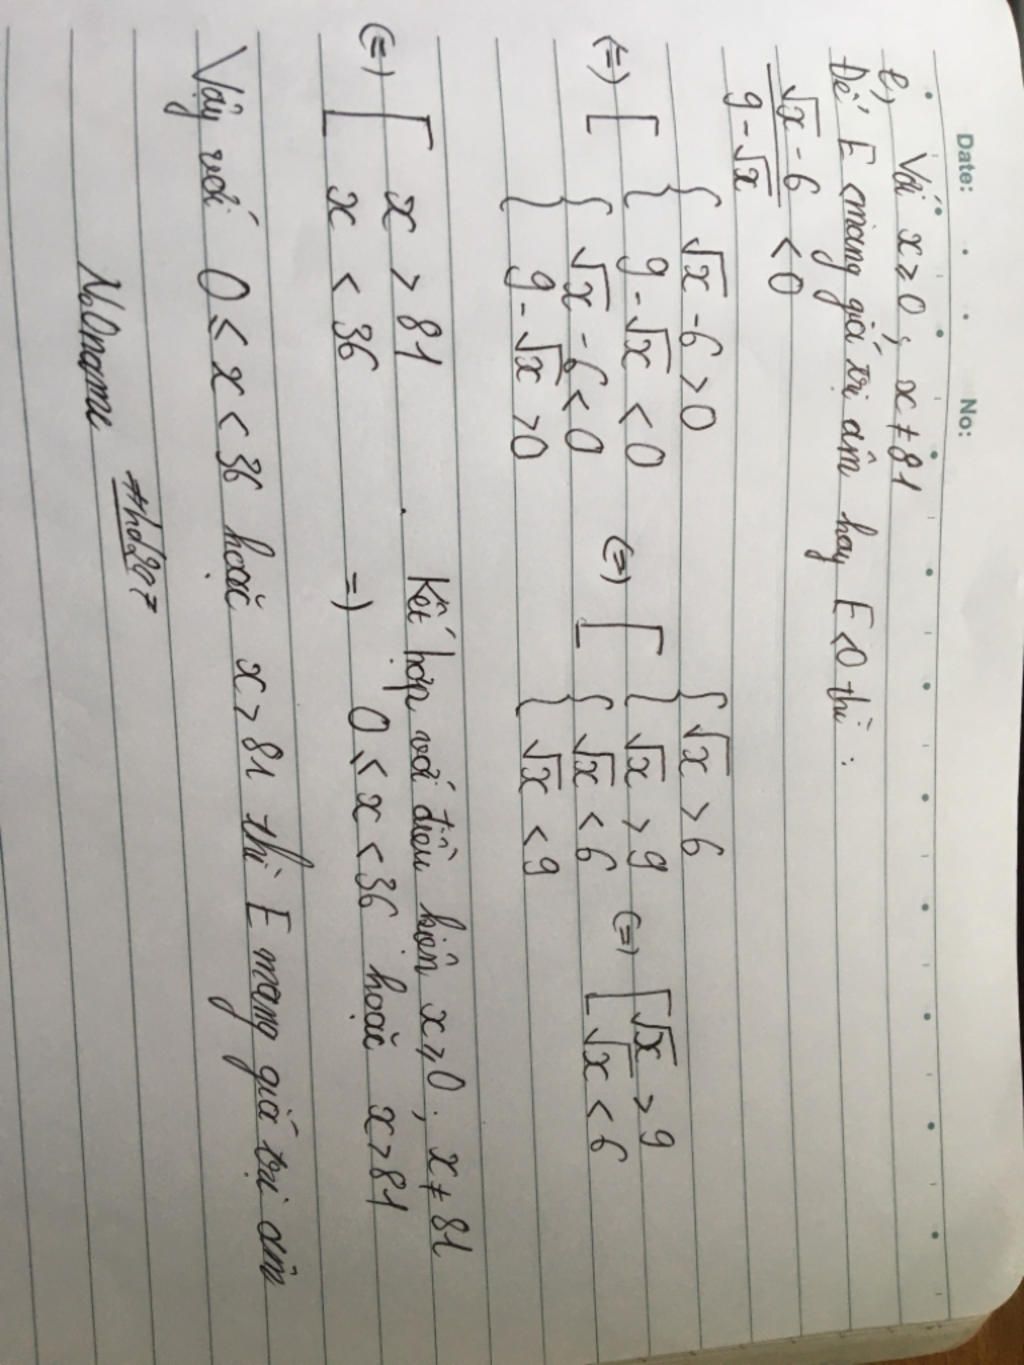 Date: No:
e, Với x ≥ 0 ; x ≠ 81
Để E mang giá trị âm hay E < 0 thì :
√x - 6 / 9 - √x < 0
(=) [ { √x - 6 > 0 (=) [ { √x > 6
9 - √x < 0 √x > 9 (=) [ √x > 9
{ √x - 6 < 0 { √x < 6 √x < 6
9 - √x > 0 √x < 9
(=) [ x > 81 . Kết hợp với điều kiện x ≥ 0 ; x ≠ 81
x < 36 =) 0 ≤ x < 36 hoặc x > 81
Vậy với 0 ≤ x < 36 hoặc x > 81 thì E mang giá trị âm
#hd207
No0name